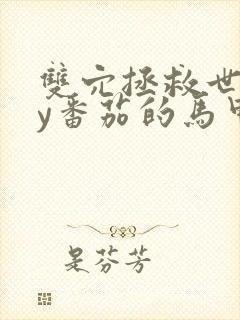 雙穴拯救世
y番茄的馬甲
是芬芳